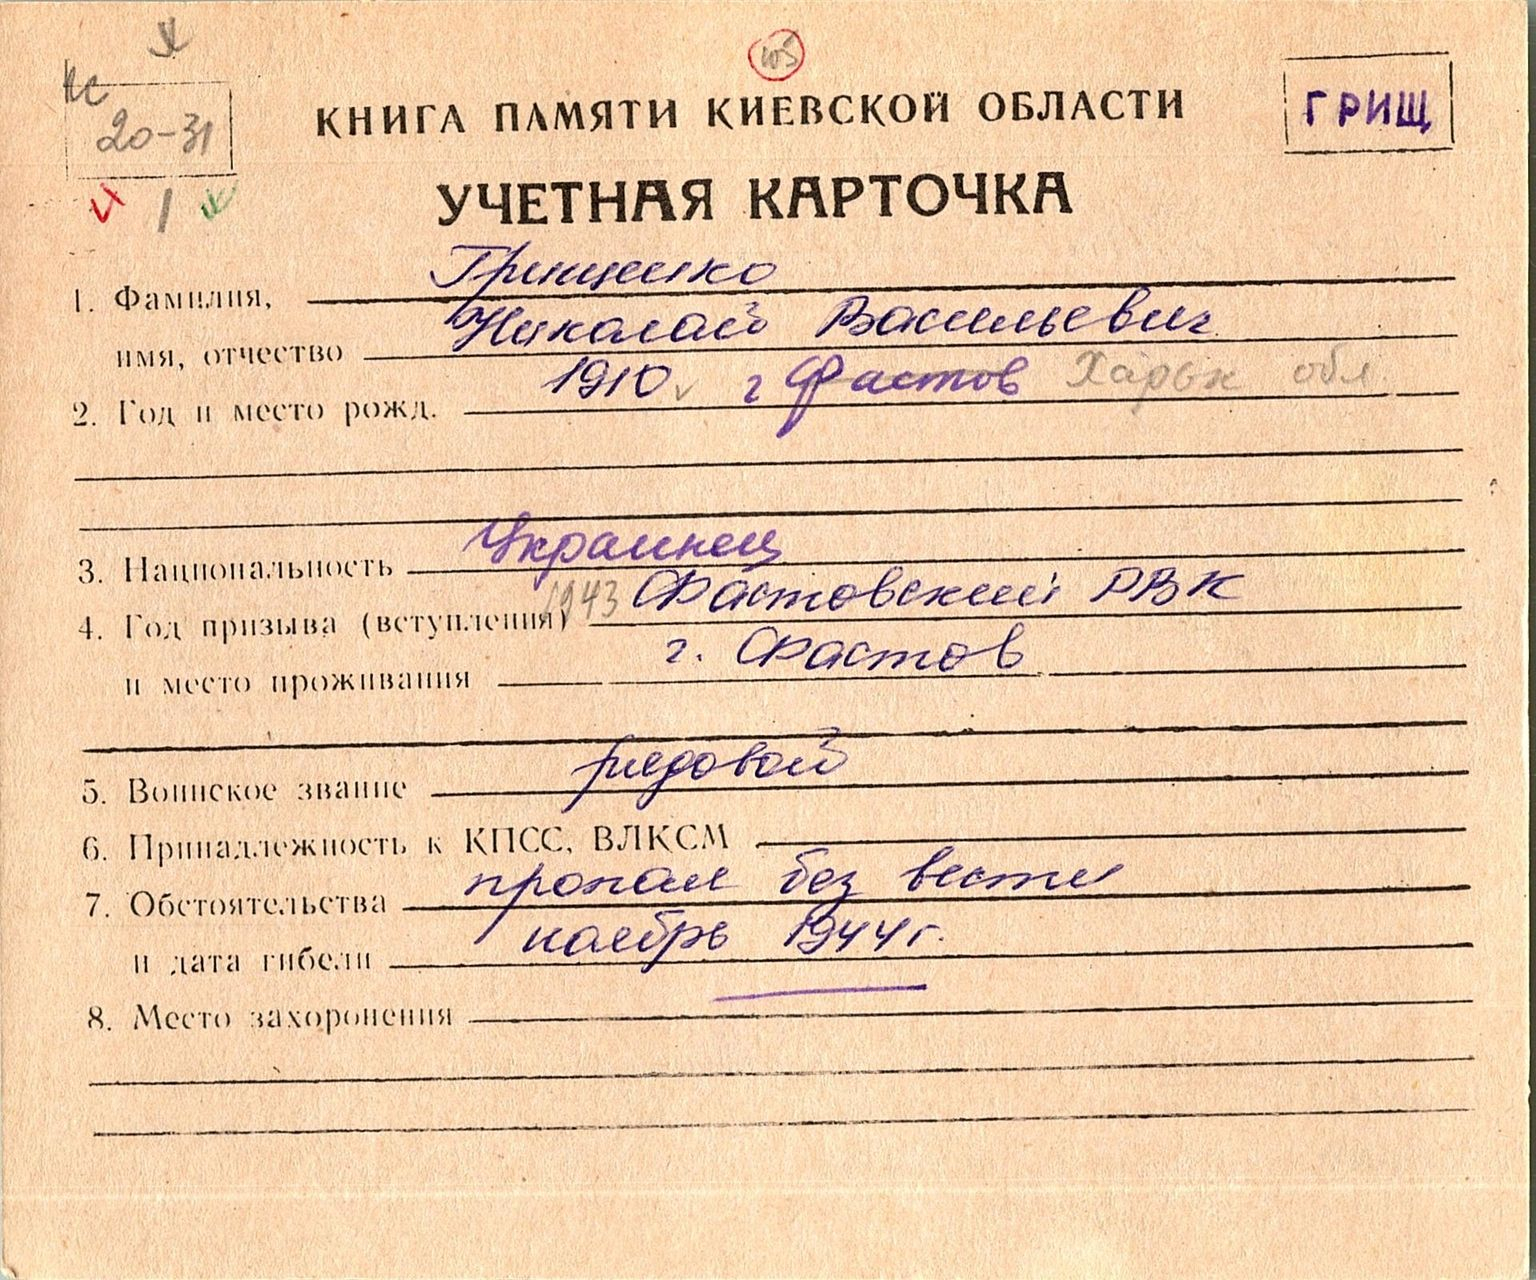 20-31
КНИГА ПАМЯТИ КИЕВСКОЙ ОБЛАСТИ
ГРИЩ
УЧЕТНАЯ КАРТОЧКА
1. Фамилия, Грищенко
имя, отчество Николай Васильевич
2. Год и место рожд. 1910 г Фастов Харьк обл.
3. Национальность Украинец
4. Год призыва (вступления) 1943 Фастовский РВК
и место проживания г. Фастов
5. Воинское звание рядовой
6. Принадлежность к КПСС, ВЛКСМ
7. Обстоятельства пропал без вести
и дата гибели ноябрь 1944г.
8. Место захоронения